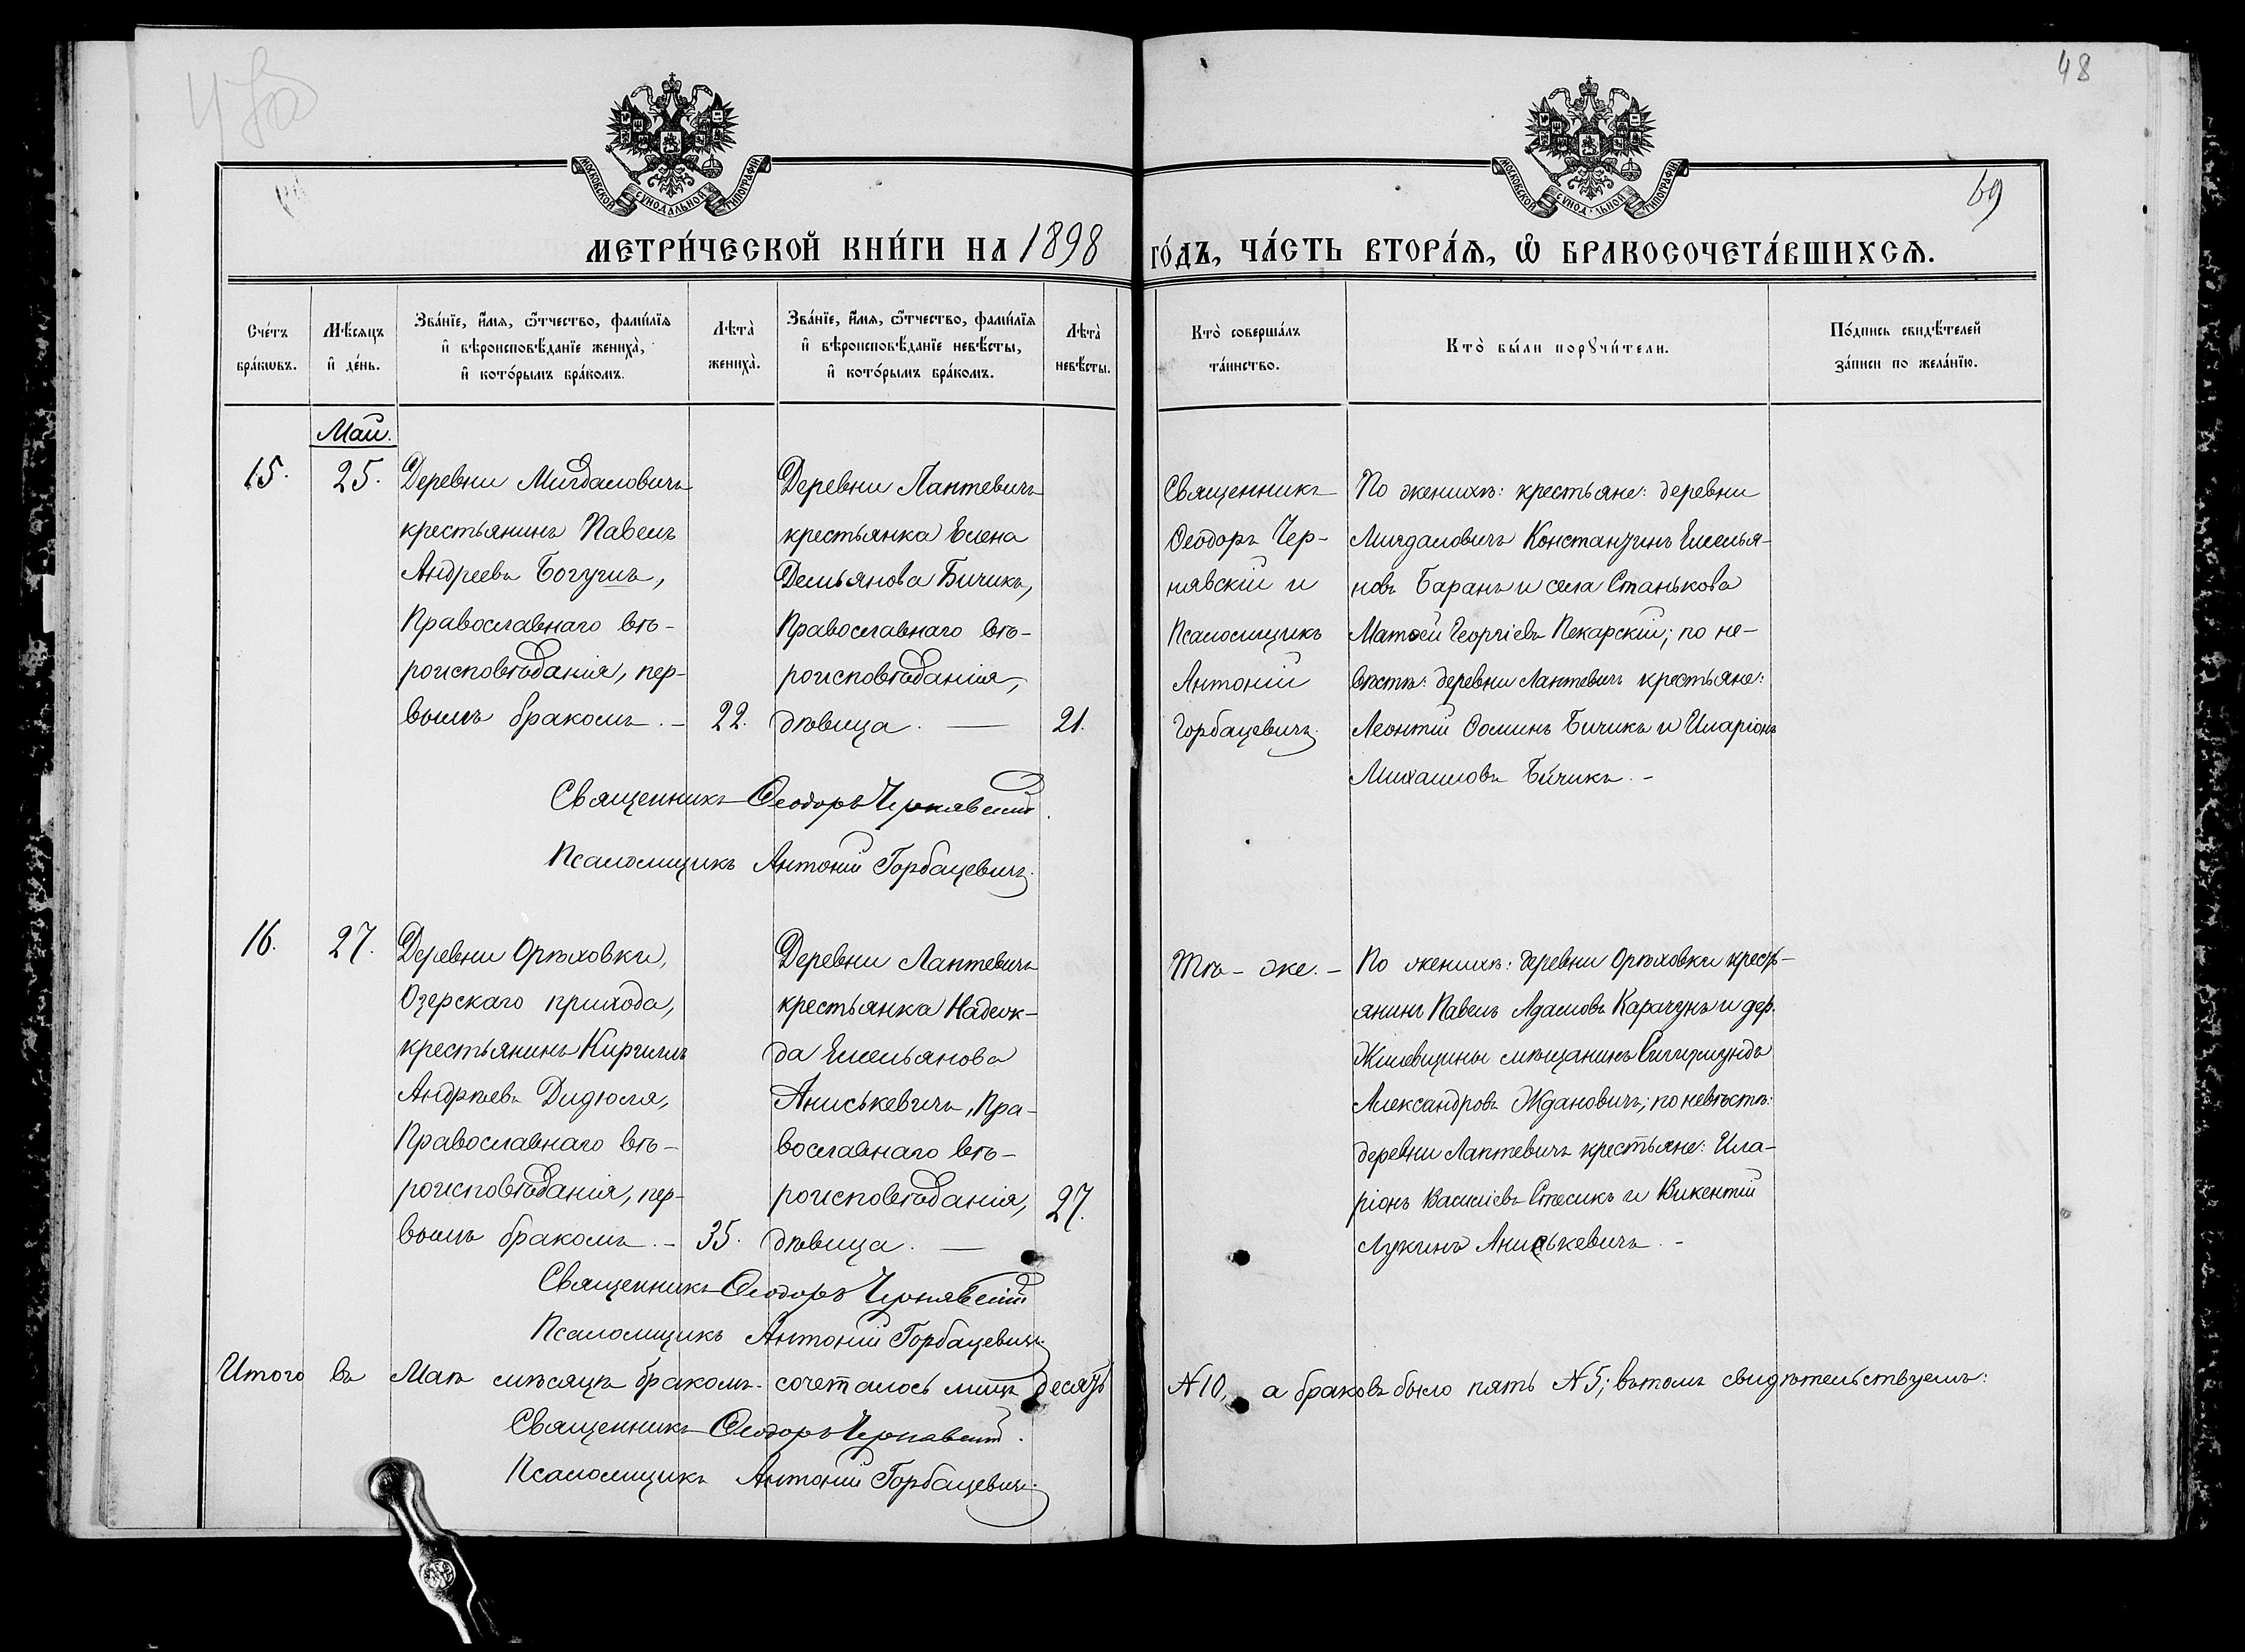 48
69
МОСКОВСКОЙ СѴНОДАЛЬНОЙ ТИПОГРАФІИ
МОСКОВСКОЙ СѴНОДАЛЬНОЙ ТИПОГРАФІИ
МЕТРИ́ЧЕСКОЙ КНИ́ГИ НА 1898 ГО́ДЪ, ЧА́СТЬ ВТОРА́Ѧ, Ѽ БРАКОСОЧЕТА́ВШИХСѦ.
Сче́тъ бра́кѡвъ.
Мѣ́сяцъ и҆ де́нь.
Зва́нїе, и҆́мѧ, ѻ҆́тчество, фами́лїѧ
и҆ вѣроисповѣ́данїе жениха̀,
и҆ кото́рымъ бра́комъ.
Лѣта̀ жениха̀.
Зва́нїе, и҆́мѧ, ѻ҆́тчество, фами́лїѧ
и҆ вѣроисповѣ́данїе невѣ́сты,
и҆ кото́рымъ бра́комъ.
Лѣта̀ невѣ́сты.
Кто̀ соверша́лъ та́инство.
Кто̀ бы́ли порꙋчи́тели.
По́дпись свидѣ́телей
за́писи по жела́нїю.
Май.
15.
25.
Деревни Мигдаловичъ
крестьянинъ Павелъ
Андреевъ Богушъ,
Православнаго вѣ-
роисповѣданія, пер-
вымъ бракомъ. –
22.
Деревни Лаптевичъ
крестьянка Елена
Демьянова Бичикъ,
Православнаго вѣ-
роисповѣданія,
дѣвица. —
21.
Священникъ
Ѳеодоръ Чер-
нявскій и
Псаломщикъ
Антоній
Горбацевичъ.
По женихѣ: крестьяне: деревни
Мигдаловичъ Константинъ Емелья-
новъ Баранъ и села Станькова
Матѳей Георгіевъ Пекарскій; по не-
вѣстѣ: деревни Лаптевичъ крестьяне:
Леонтій Ѳоминъ Бичикъ и Иларіонъ
Михаиловъ Бичикъ. –
Священникъ Ѳеодоръ Чернявскій.
Псаломщикъ Антоній Горбацевичъ.
16.
27.
Деревни Орѣховки,
Озерскаго прихода,
крестьянинъ Кириллъ
Андреевъ Дидюля,
Православнаго вѣ-
роисповѣданія, пер-
вымъ бракомъ. –
35.
Деревни Лаптевичъ
крестьянка Надеж-
да Емельянова
Аниськевичъ, Пра-
вославнаго вѣ-
роисповѣданія,
дѣвица. —
27.
Тѣ-же. –
По женихѣ: деревни Орѣховки кресть-
янинъ Павелъ Адамовъ Карачунъ и дер.
мѣщанинъ Сигизмундъ
Александровъ Ждановичъ; по невѣстѣ:
деревни Лаптевичъ крестьяне: Ила-
ріонъ Василіевъ Стасикъ и Викентій
Лукинъ Аниськевичъ. –
Священникъ Ѳеодоръ Чернявскій
Псаломщикъ Антоній Горбацевичъ.
Итого въ Маѣ мѣсяцѣ бракомъ сочеталось лицъ десять №10, а браковъ было пять №5; въ томъ свидѣтельствуемъ:
Священникъ Ѳеодоръ Чернявскій.
Псаломщикъ Антоній Горбацевичъ.